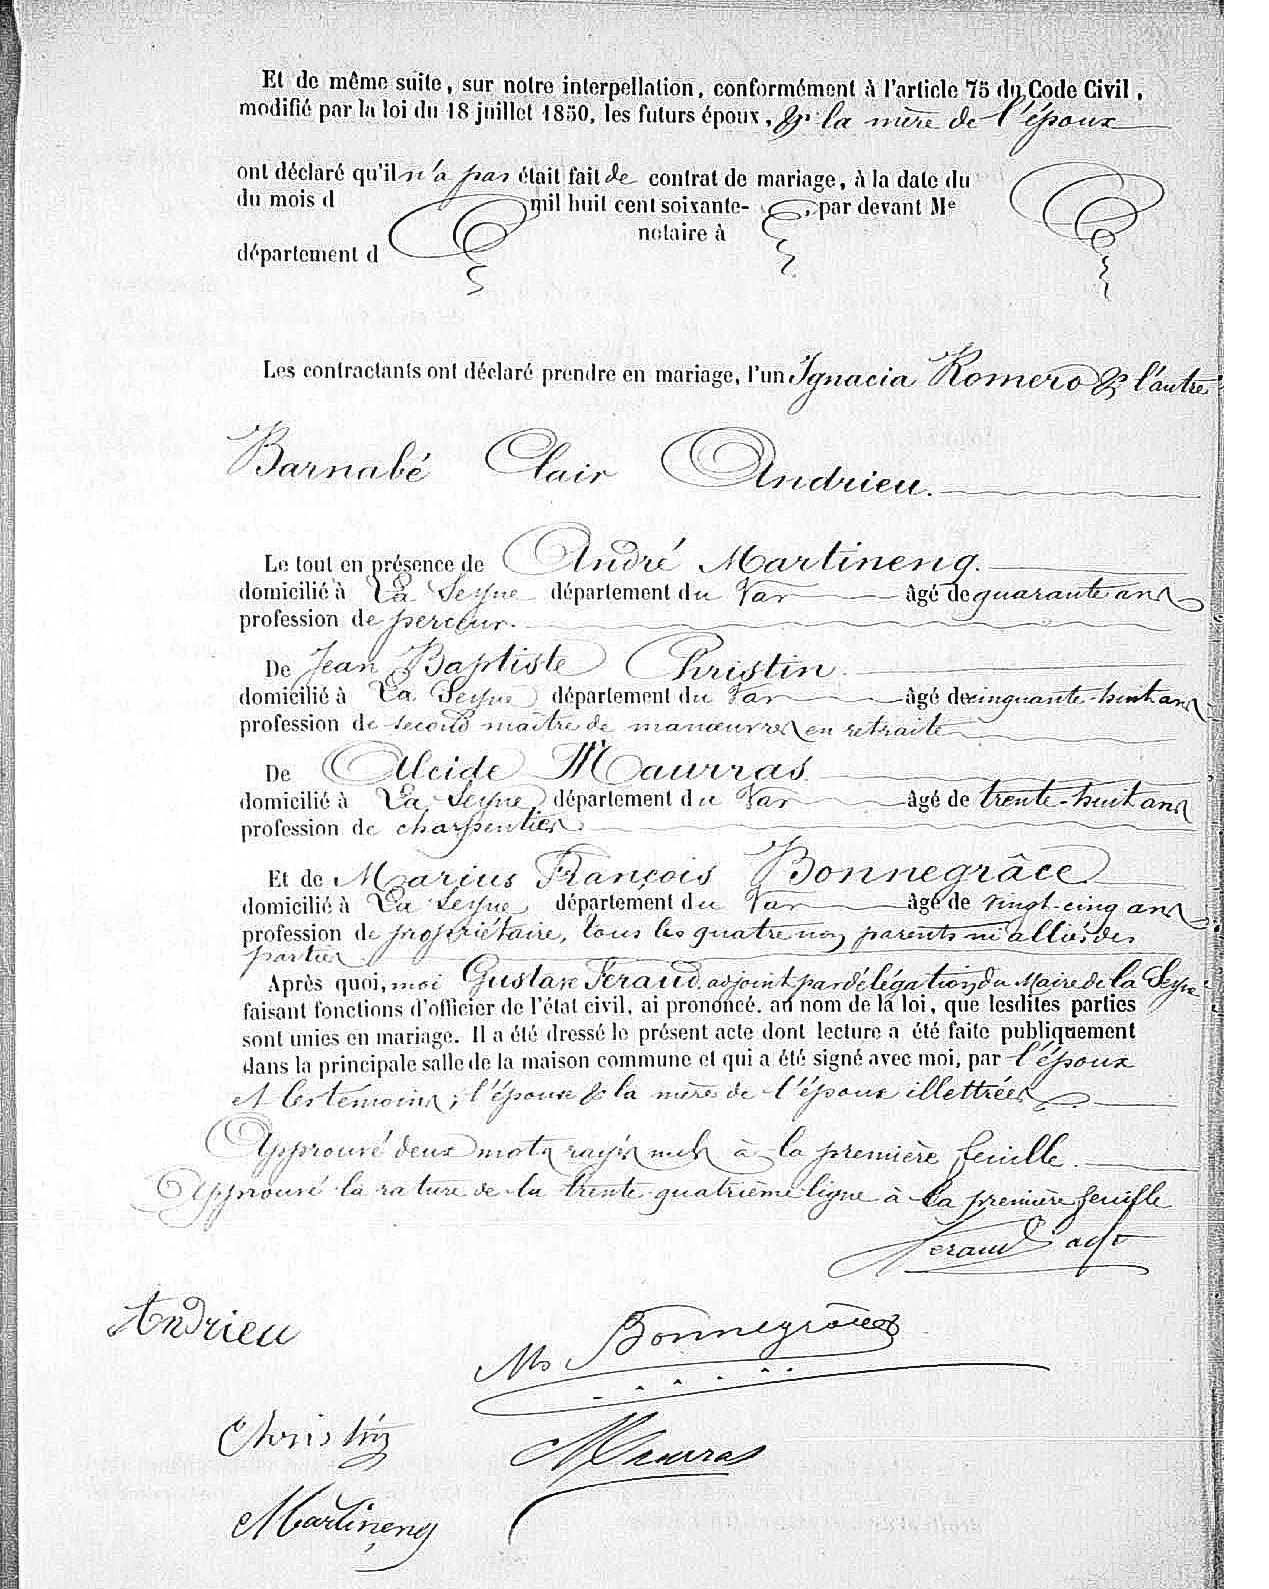 Et de même suite, sur notre interpellation, conformément à l'article 75 du Code Civil,
modifié par la loi du 18 juillet 1850, les futurs époux, & la mère de l'époux
ont déclaré qu'il n'a pas était fait de contrat de mariage, à la date du
du mois d mil huit cent soixante- , par devant Me
notaire à
département d
Les contractants ont déclaré prendre en mariage, l'un Ignacia Romero & l'autre
Barnabé Clair Andrieu.
Le tout en présence de André Martinenq.
domicilié à La Seyne département du Var âgé de quarante ans
profession de perceur.
De Jean Baptiste Christin.
domicilié à La Seyne département du Var âgé de cinquante-huit ans
profession de second maître de manœuvres en retraite
De Alcide Maurras
domicilié à La Seyne département du Var âgé de trente-huit ans
profession de charpentier
Et de Marius François Bonnegrâce
domicilié à La Seyne département du Var âgé de vingt-cinq ans
profession de propriétaire, tous les quatre non parents ni alliés des
parties
Après quoi, moi Gustave Féraud, adjoint par délégation du Maire de la Seyne
faisant fonctions d'officier de l'état civil, ai prononcé, au nom de la loi, que lesdites parties
sont unies en mariage. Il a été dressé le présent acte dont lecture a été faite publiquement
dans la principale salle de la maison commune et qui a été signé avec moi, par l'époux
et les témoins ; l'épouse & la mère de l'époux illettrées
Approuvé deux mots rayés nuls à la première feuille.
Approuvé la rature de la trente-quatrième ligne à la première feuille
Feraud adjt
Andrieu
Ms Bonnegrâce
Christin
Maurras
Martinenq